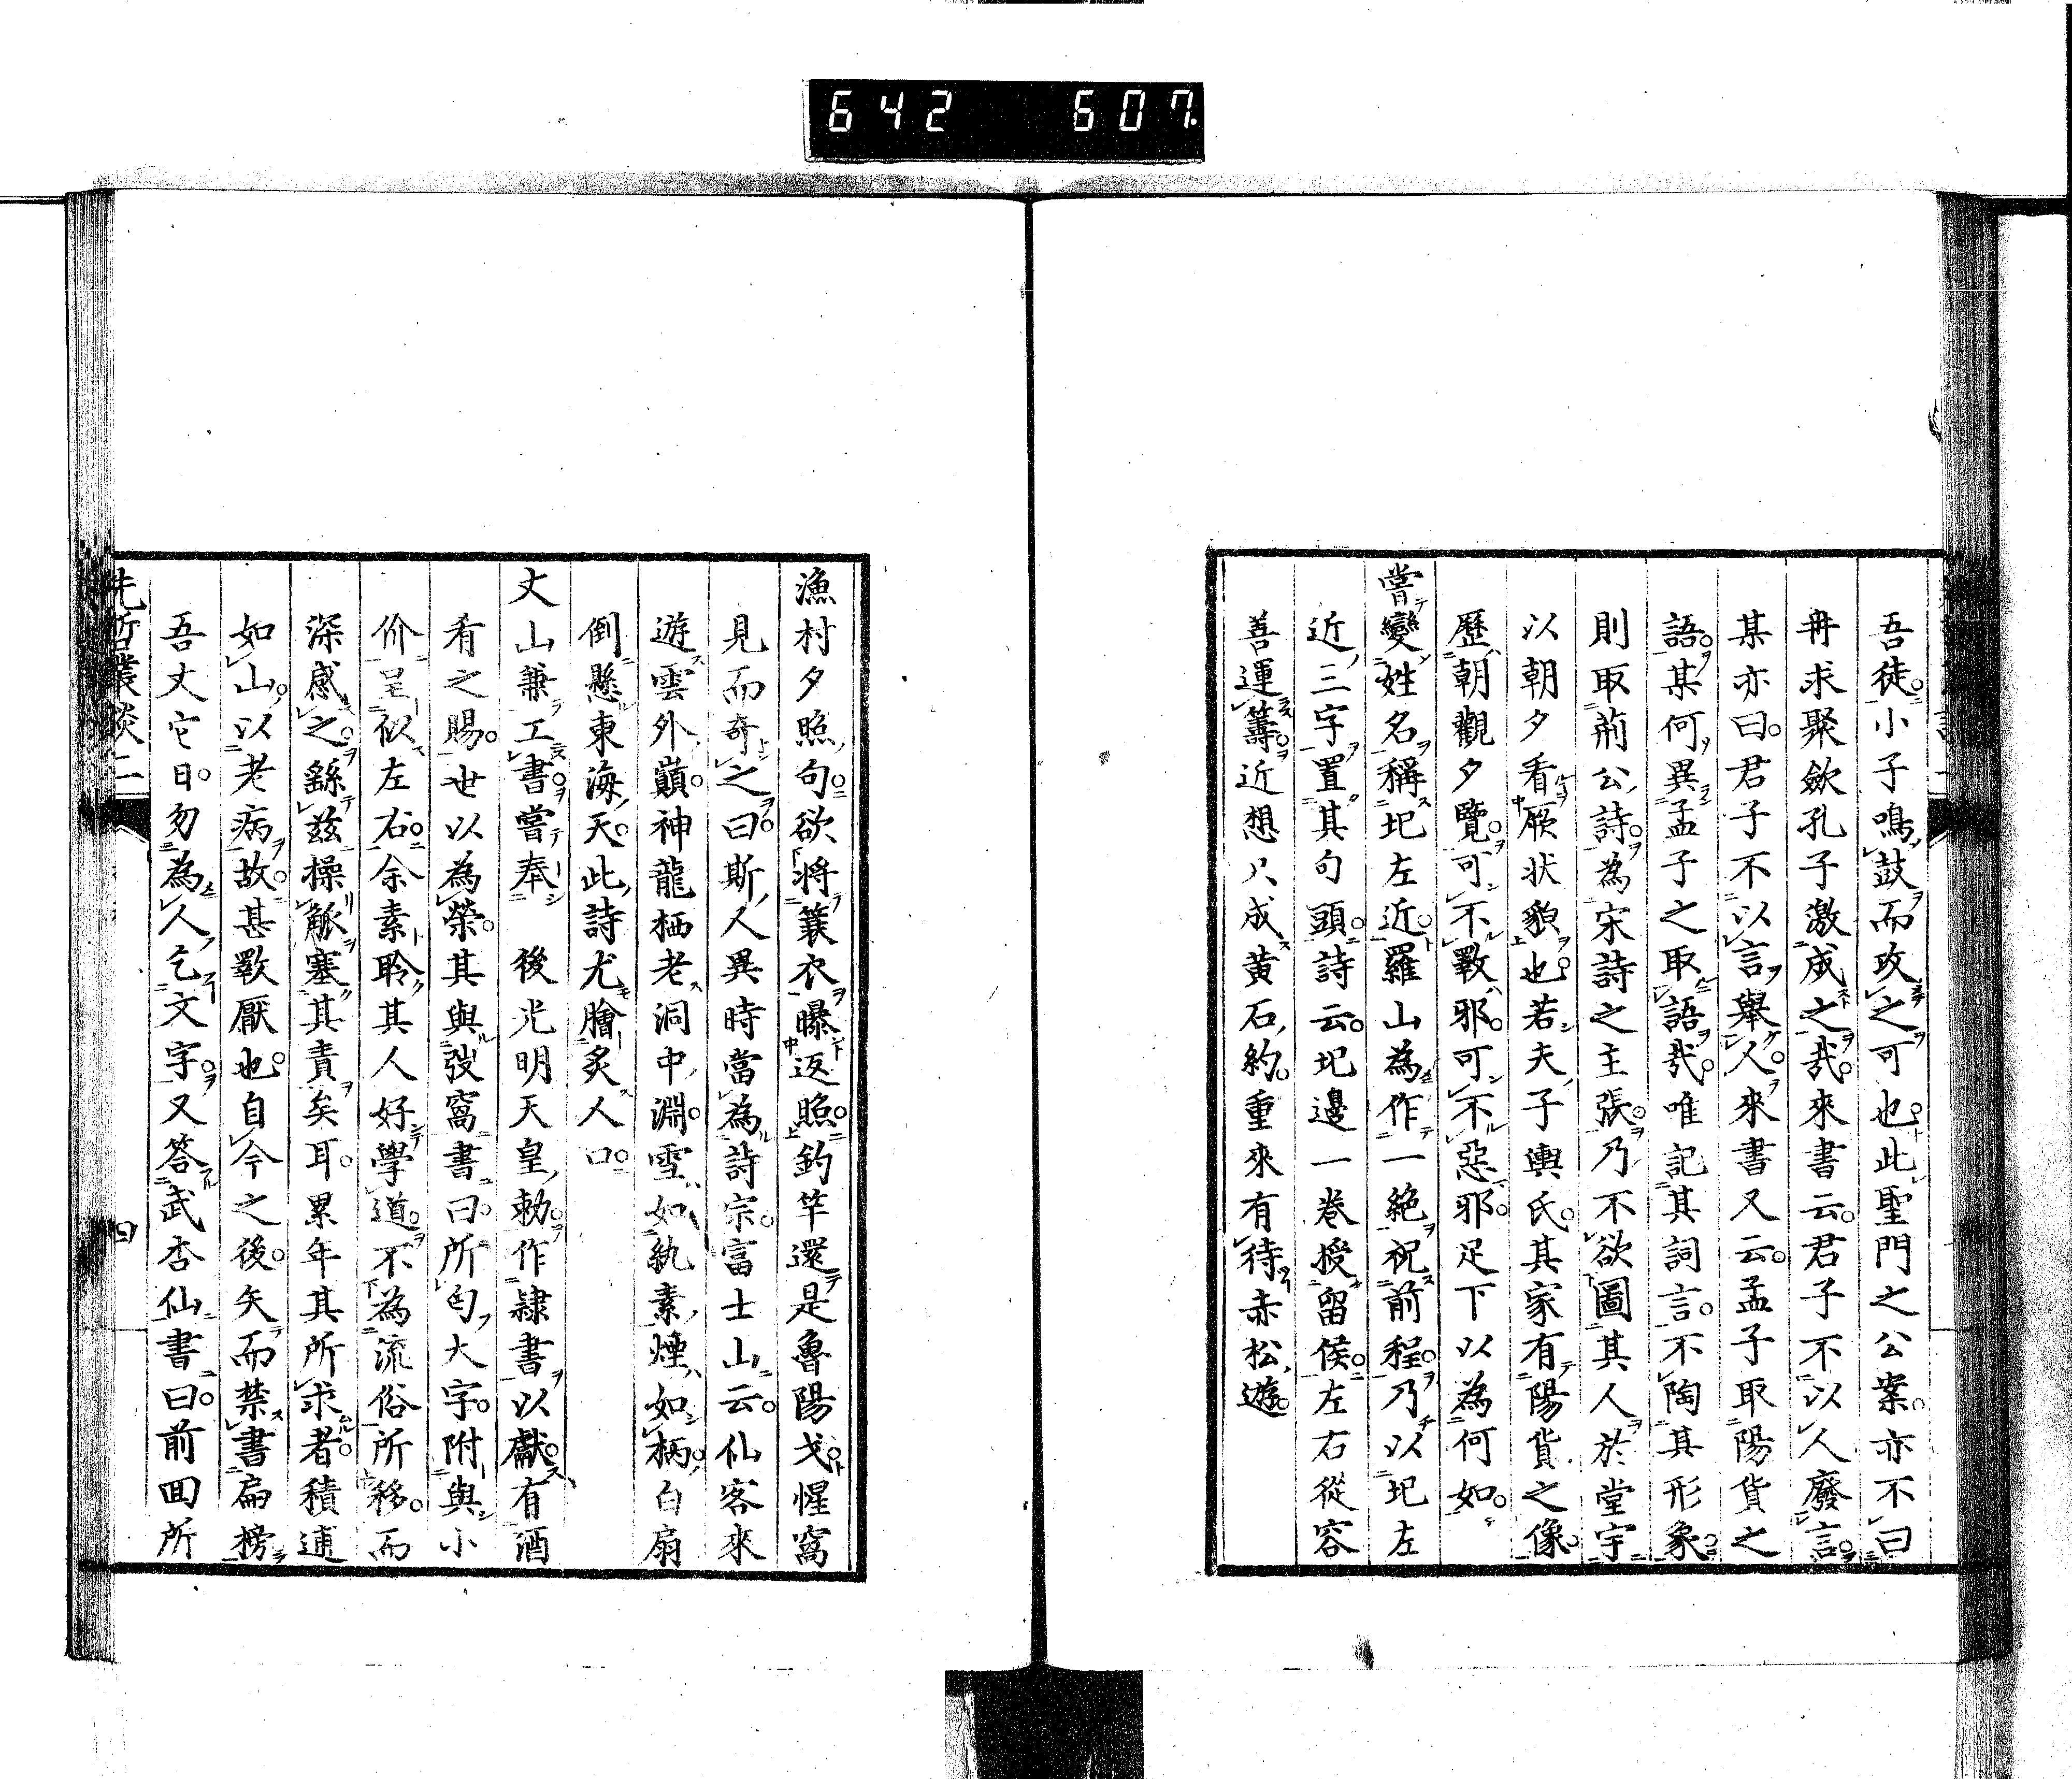 642 607
吾徒小子鳴鼓而攻之可也此聖門之公案亦不曰
冉求聚歛孔子激成之哉來書云君子不以人廢言
某亦曰君子不以言舉人來書又云孟子取陽貨之
語某何異孟子之取語哉唯記其詞言不陶其形象
則取荊公詩為宋詩之主張乃不欲圖其人於堂宇
以朝夕看厥狀貌也若夫子輿氏其家有陽貨之像
歷朝觀夕覽可不斁邪可不惡邪足下以為何如
嘗變姓名稱圯左近羅山為作一絕祝前程乃以圯左
近三字置其句頭詩云圯邊一卷授留侯左右從容
善運籌近想只成黃石約重來有待赤松遊
漁村夕照句欲將簑衣曝返照釣竿還是魯陽戈惺窩
見而奇之曰斯人異時當為詩宗富士山云仙客來
遊雲外巔神龍栖老洞中淵雪如紈素煙如柄白扇
倒懸東海天此詩尤膾炙人口
丈山兼工書嘗奉 後光明天皇勅作隷書以獻有酒
肴之賜世以為榮其與弢窩書曰所匄大字附與小
价呈似左右余素聆其人好學道不為流俗所移而
深感之繇茲操觚塞其責矣耳累年其所求者積逋
如山以老病故甚斁厭也自今之後矢而禁書扁榜
吾丈它日勿為人乞文字又答武杏仙書曰前回所
先哲叢談二
四